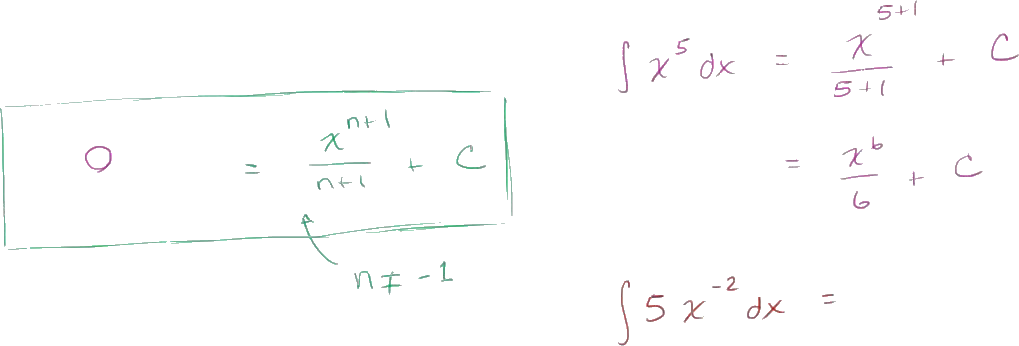 O = x^{n+1}/n+1 + C
n ≠ -1
∫ x^5 dx = x^{5+1}/5+1 + C
= x^6/6 + C
∫ 5 x^{-2} dx =